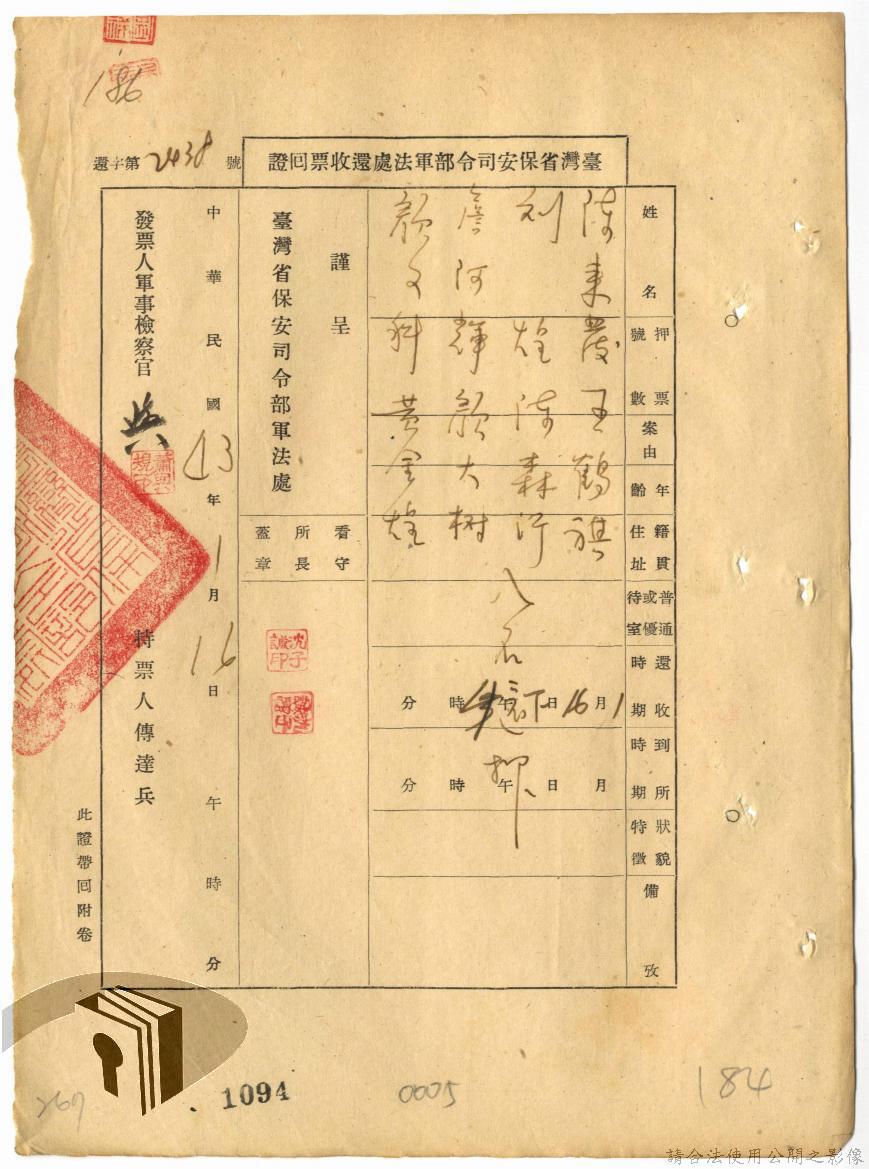 196
臺灣省保安司令部軍法處還收票回證
還字第2438號
姓名
押號
票數
案由
年齡
籍貫
住址
普通或優待室
還收時期
到所時期
狀貌特徵
備攷
陳來發 王鶴祺
刘煌 陳森河
詹阿輝 顏大树
顏文科 黃金煌
八名還押
1月16日下午4時 分
月 日 午 時 分
謹呈
臺灣省保安司令部軍法處
看守所所長蓋章
中華民國43年1月16日 午 時 分
發票人軍事檢察官
持票人傳達兵
此證帶回附卷
267
1094
0005
184
請合法使用公開之影像